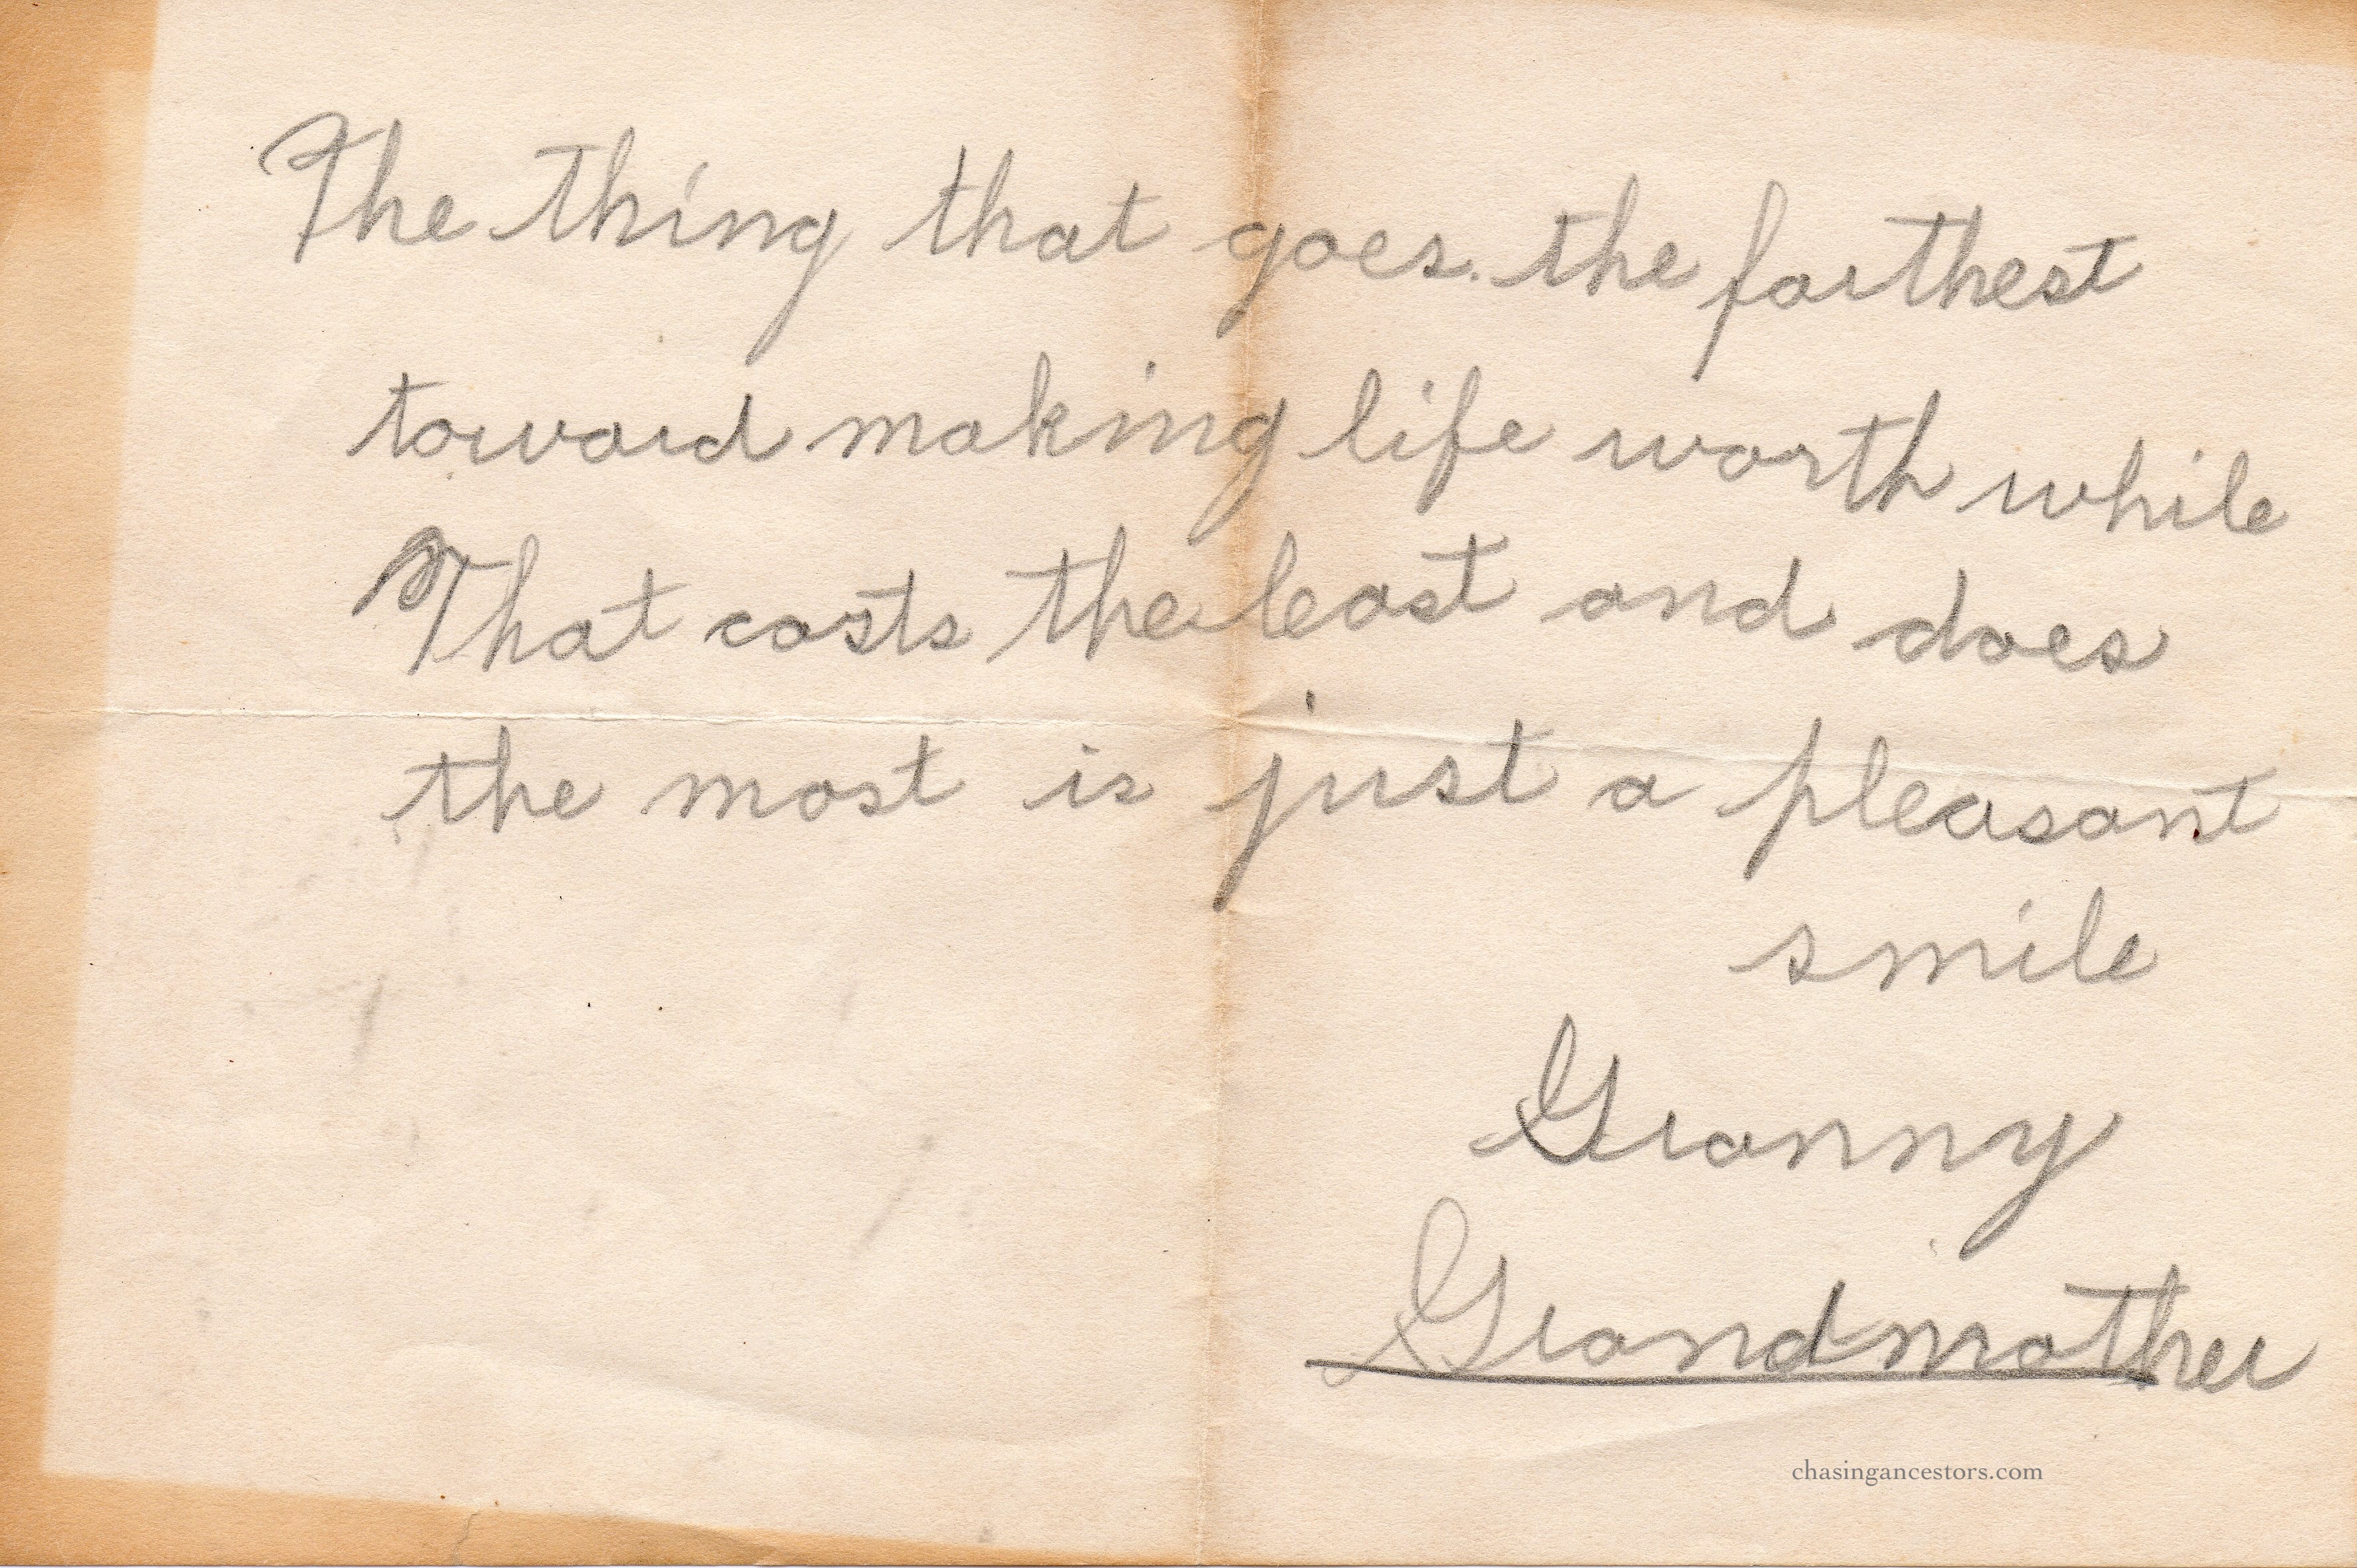 The thing that goes. the farthest
toward making life worth while
That costs the least and does
the most is just a pleasant
smile
Granny
Grandmother
chasingancestors.com